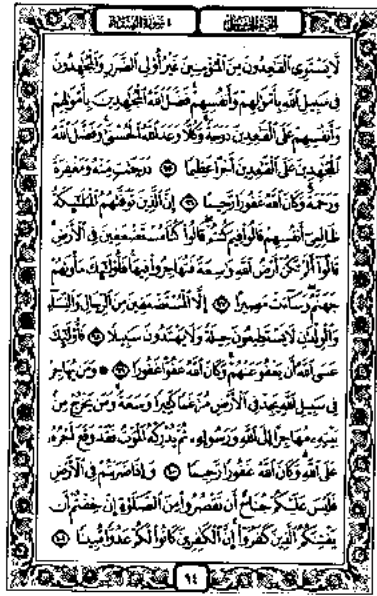 الجزء الخامس ٤ سورة النساء
لَّا يَسْتَوِي الْقَاعِدُونَ مِنَ الْمُؤْمِنِينَ غَيْرُ أُولِي الضَّرَرِ وَالْمُجَاهِدُونَ
فِي سَبِيلِ اللَّهِ بِأَمْوَالِهِمْ وَأَنفُسِهِمْ فَضَّلَ اللَّهُ الْمُجَاهِدِينَ بِأَمْوَالِهِمْ
وَأَنفُسِهِمْ عَلَى الْقَاعِدِينَ دَرَجَةً وَكُلًّا وَعَدَ اللَّهُ الْحُسْنَى وَفَضَّلَ اللَّهُ
الْمُجَاهِدِينَ عَلَى الْقَاعِدِينَ أَجْرًا عَظِيمًا ٩٥ دَرَجَاتٍ مِّنْهُ وَمَغْفِرَةً
وَرَحْمَةً وَكَانَ اللَّهُ غَفُورًا رَّحِيمًا ٩٦ إِنَّ الَّذِينَ تَوَفَّاهُمُ الْمَلَائِكَةُ
ظَالِمِي أَنفُسِهِمْ قَالُوا فِيمَ كُنتُمْ قَالُوا كُنَّا مُسْتَضْعَفِينَ فِي الْأَرْضِ
قَالُوا أَلَمْ تَكُنْ أَرْضُ اللَّهِ وَاسِعَةً فَتُهَاجِرُوا فِيهَا فَأُولَٰئِكَ مَأْوَاهُمْ
جَهَنَّمُ وَسَاءَتْ مَصِيرًا ٩٧ إِلَّا الْمُسْتَضْعَفِينَ مِنَ الرِّجَالِ وَالنِّسَاءِ
وَالْوِلْدَانِ لَا يَسْتَطِيعُونَ حِيلَةً وَلَا يَهْتَدُونَ سَبِيلًا ٩٨ فَأُولَٰئِكَ
عَسَى اللَّهُ أَن يَعْفُوَ عَنْهُمْ وَكَانَ اللَّهُ عَفُوًّا غَفُورًا ٩٩ * وَمَن يُهَاجِرْ
فِي سَبِيلِ اللَّهِ يَجِدْ فِي الْأَرْضِ مُرَاغَمًا كَثِيرًا وَسَعَةً وَمَن يَخْرُجْ مِن
بَيْتِهِ مُهَاجِرًا إِلَى اللَّهِ وَرَسُولِهِ ثُمَّ يُدْرِكْهُ الْمَوْتُ فَقَدْ وَقَعَ أَجْرُهُ
عَلَى اللَّهِ وَكَانَ اللَّهُ غَفُورًا رَّحِيمًا ١٠٠ وَإِذَا ضَرَبْتُمْ فِي الْأَرْضِ
فَلَيْسَ عَلَيْكُمْ جُنَاحٌ أَن تَقْصُرُوا مِنَ الصَّلَاةِ إِنْ خِفْتُمْ أَن
يَفْتِنَكُمُ الَّذِينَ كَفَرُوا إِنَّ الْكَافِرِينَ كَانُوا لَكُمْ عَدُوًّا مُّبِينًا ١٠١
٩٤